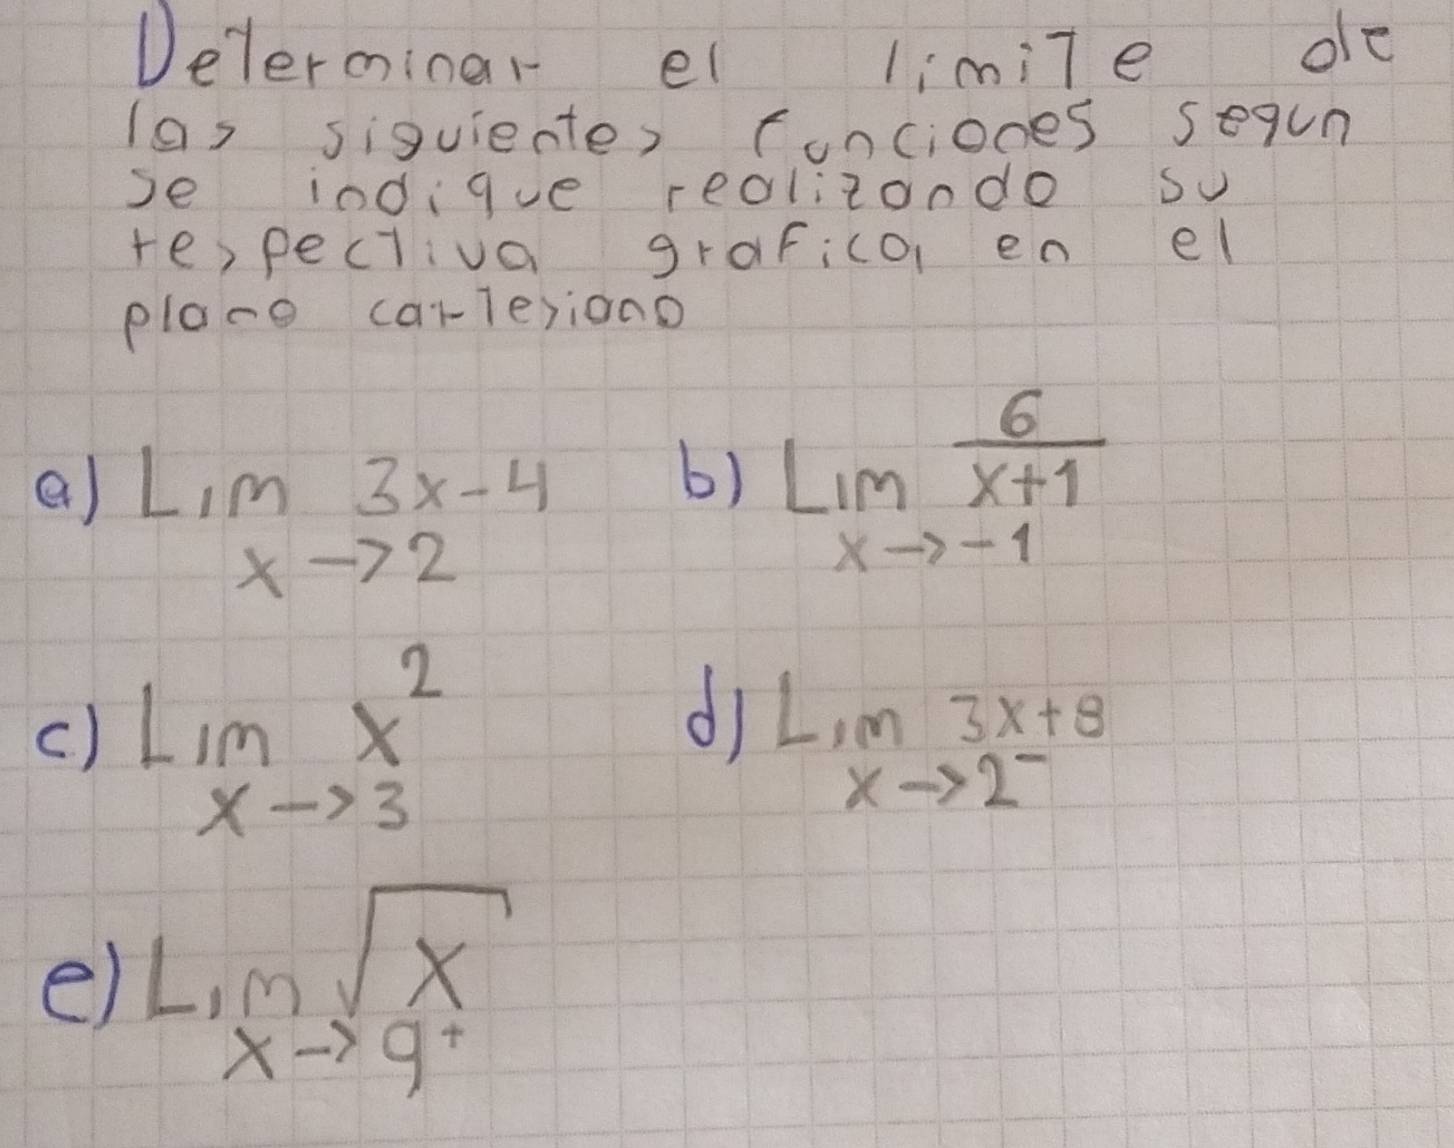 Determinar el limite de
las siguientes funciones segun
se indique realizando su
respectiva grafica, en el
plano cartesiano
a) Lim 3x-4 b) Lim 6/(x+1)
x→2 x→-1
c) Lim x² d) Lim 3x+8
x→3 x→2⁻
e) Lim √x
x→9⁺